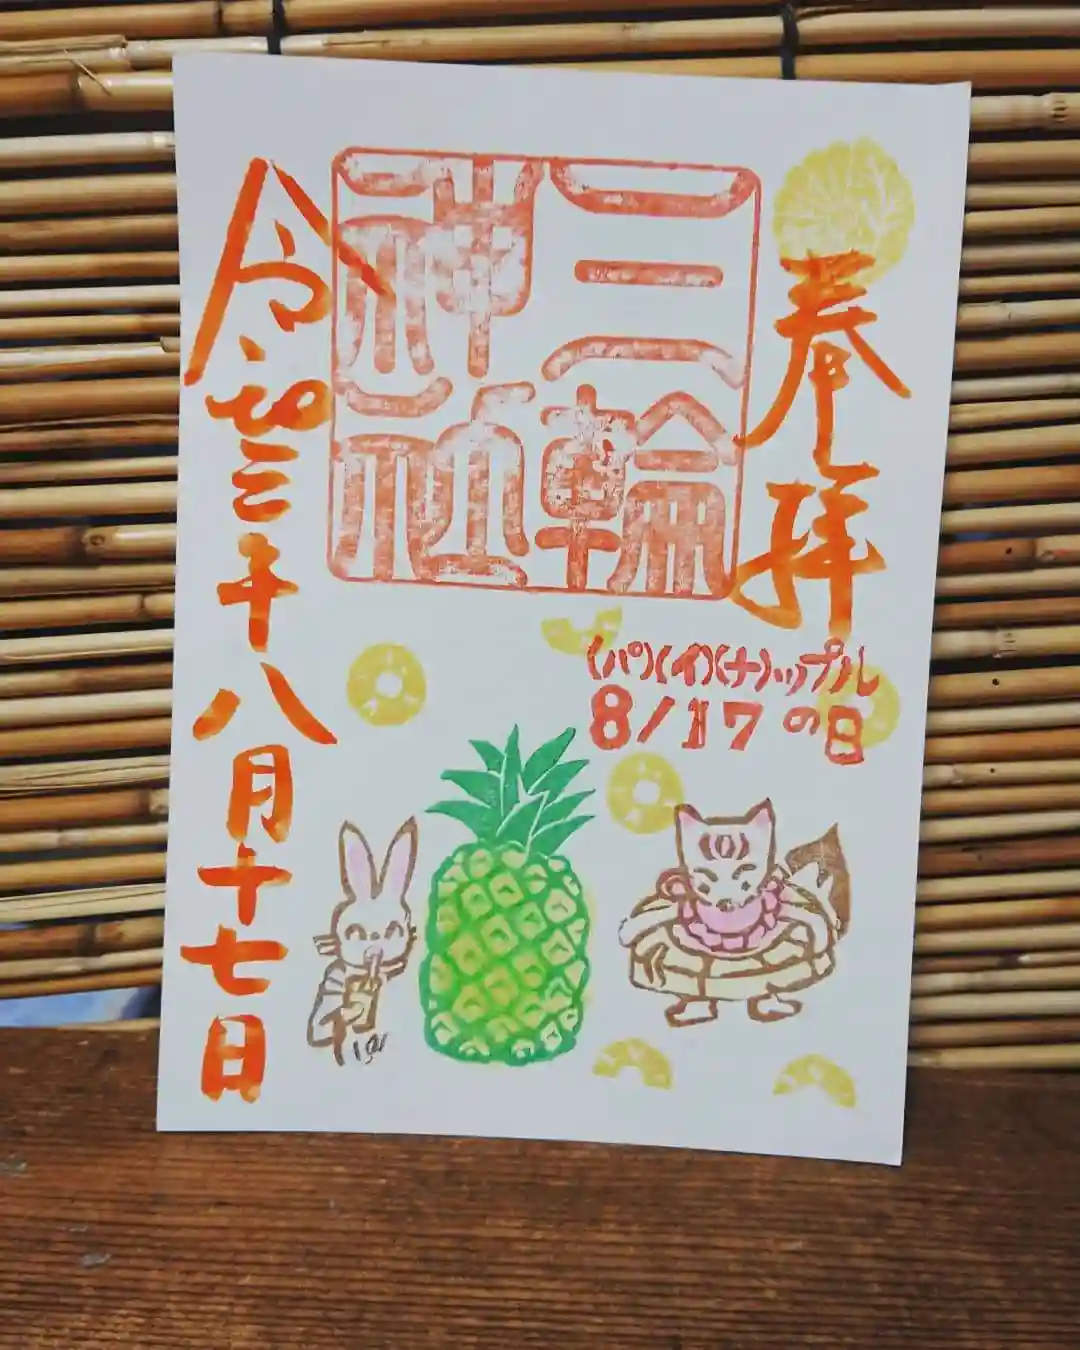 奉拝
三輪
神社
(パ)(イ)(ナ)ップル
8/17の日
令和三年八月十七日